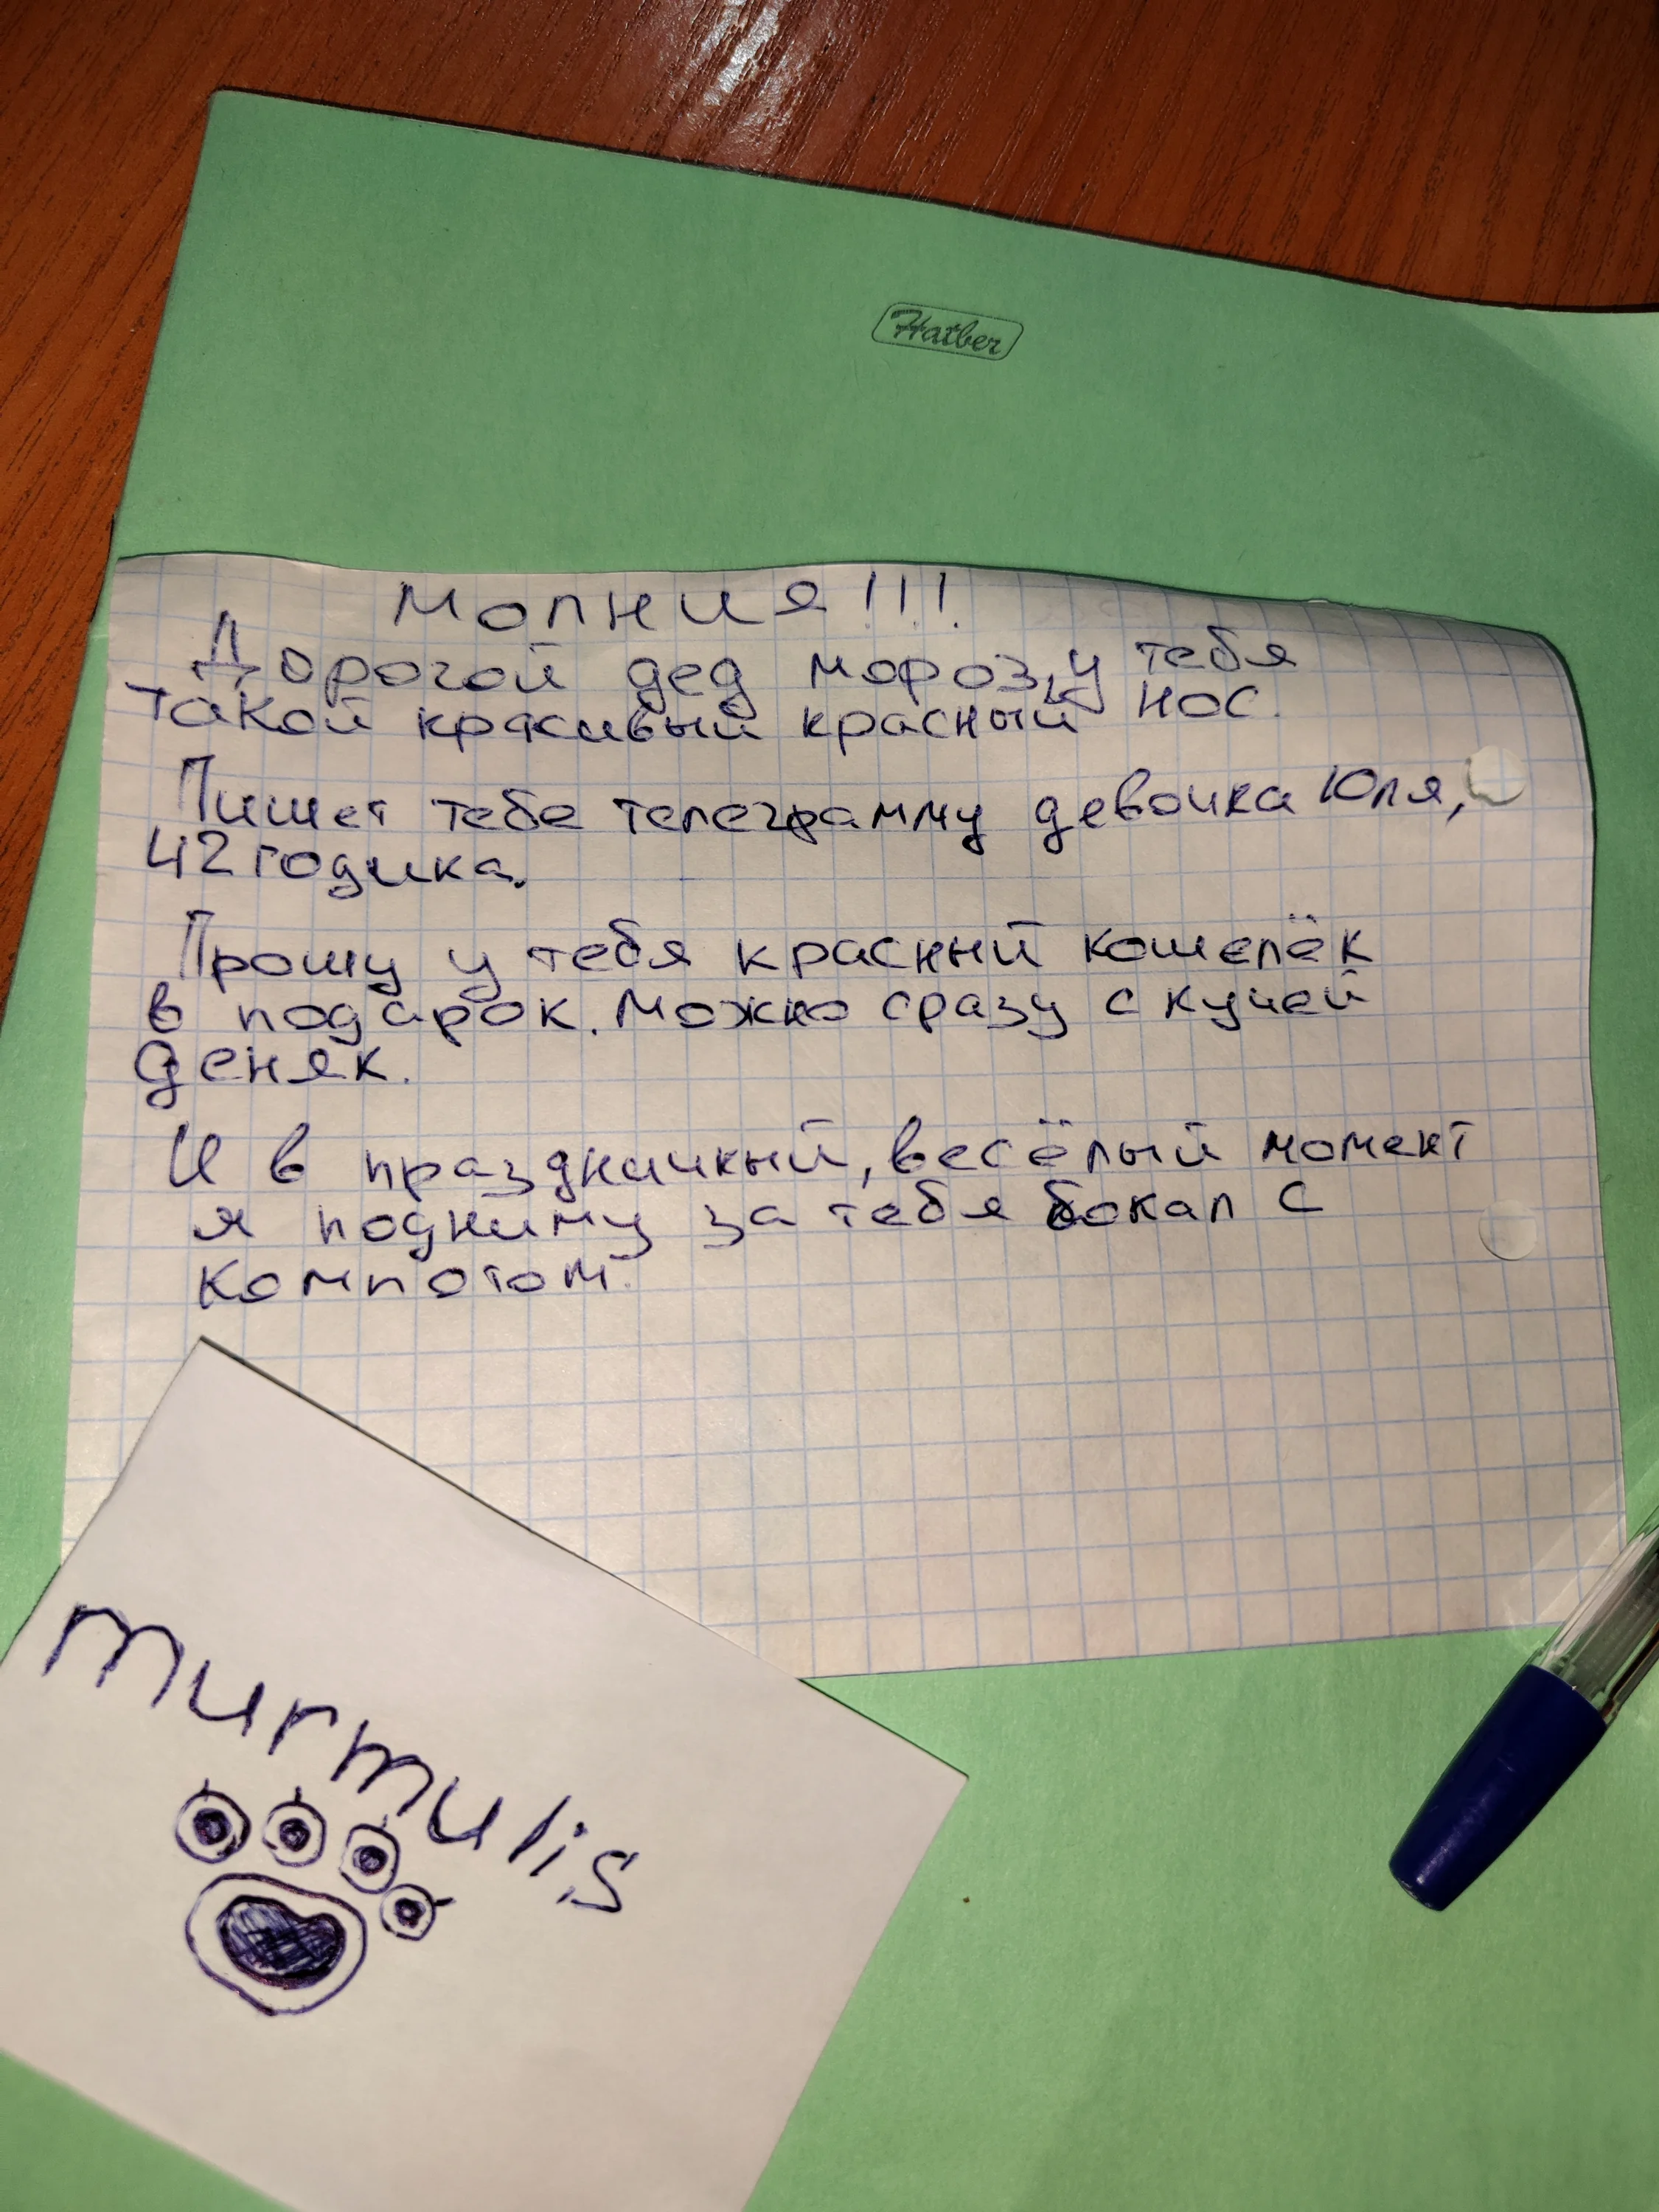 Hatber
Молния!!!
Дорогой дед мороз, у тебя
такой красивый красный нос.
Пишет тебе телеграмму девочка Юля,
42 годика.
Прошу у тебя красный кошелёк
в подарок. Можно сразу с кучей
деняк.
И в праздничный, весёлый момент
я подниму за тебя бокал с
компотом.
murmulis